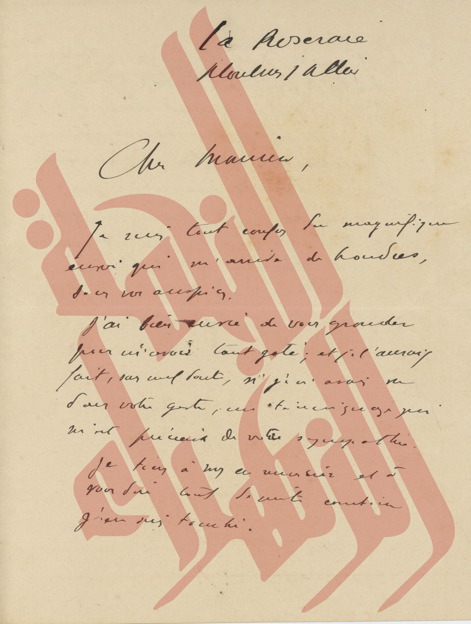 La Roseraie
Moulins / Allier
Cher Monsieur,
Je suis tout confus du magnifique
envoi qui m'arrive de Londres,
sous vos auspices.
J'ai bien envie de vous gronder
pour m'avoir tant gâté; et je l'aurais
fait, sans nul doute, si je n'avais vu
dans votre geste, un témoignage qui
m'est précieux de votre sympathie.
Je tiens à vous en remercier et à
vous dire tout de suite combien
j'en suis touché.
النهضة
الزهراء